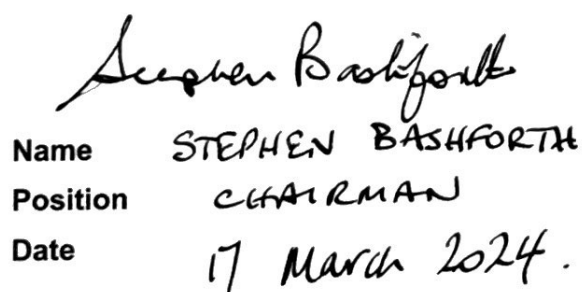 Stephen Bashforth
Name STEPHEN BASHFORTH
Position CHAIRMAN
Date 17 March 2024.